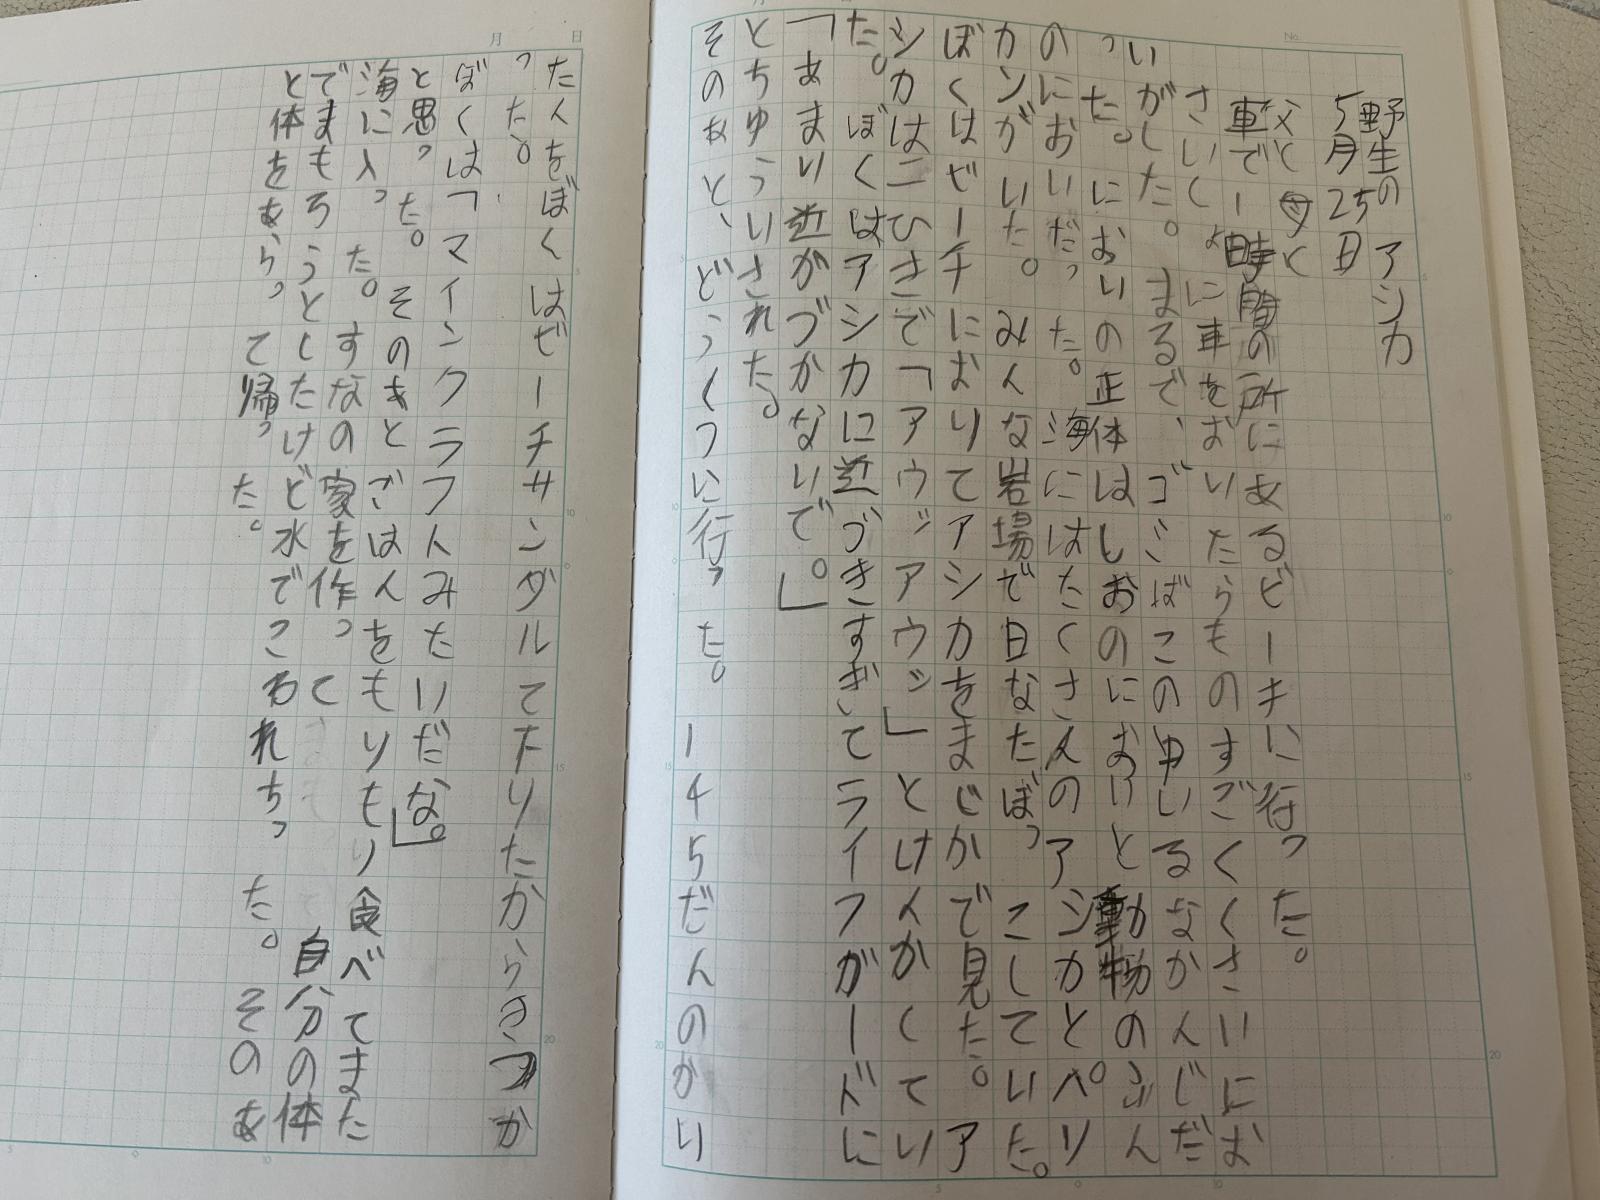 野生のアシカ
5月25日
父と母と
車で一時間の所にあるビーチに行った。
さいしょに車をおいたらものすごくくさいにお
いがした。まるで、ゴごばこの中いるなかんじだ
った。においの正体はしおのにおいと動物のふん
のにおいだった。海にはたくさんのアシカとペリ
カンがいた。みんな岩場で日なたぼっこしていた。
ぼくはビーチにおりてアシカをまじかで見た。ア
シカは二ひきで「アウッアウッ」とけんかしてい
た。ぼくはアシカに近づきすぎてライフガードに
「あまり近がづかないで。」
とちゅういされた。
そのあと、どうくつに行った。145だんのかい
だんをぼくはビーチサンダルて下りたからきつか
った。
ぼくは「マインクラフトみたいだな。」
と思った。そのあとごはんをもりもり食べてまた
海に入った。すなの家を作って
でまもろうとしたけど水でこわれちった。そのあ
と体をあらって帰った。